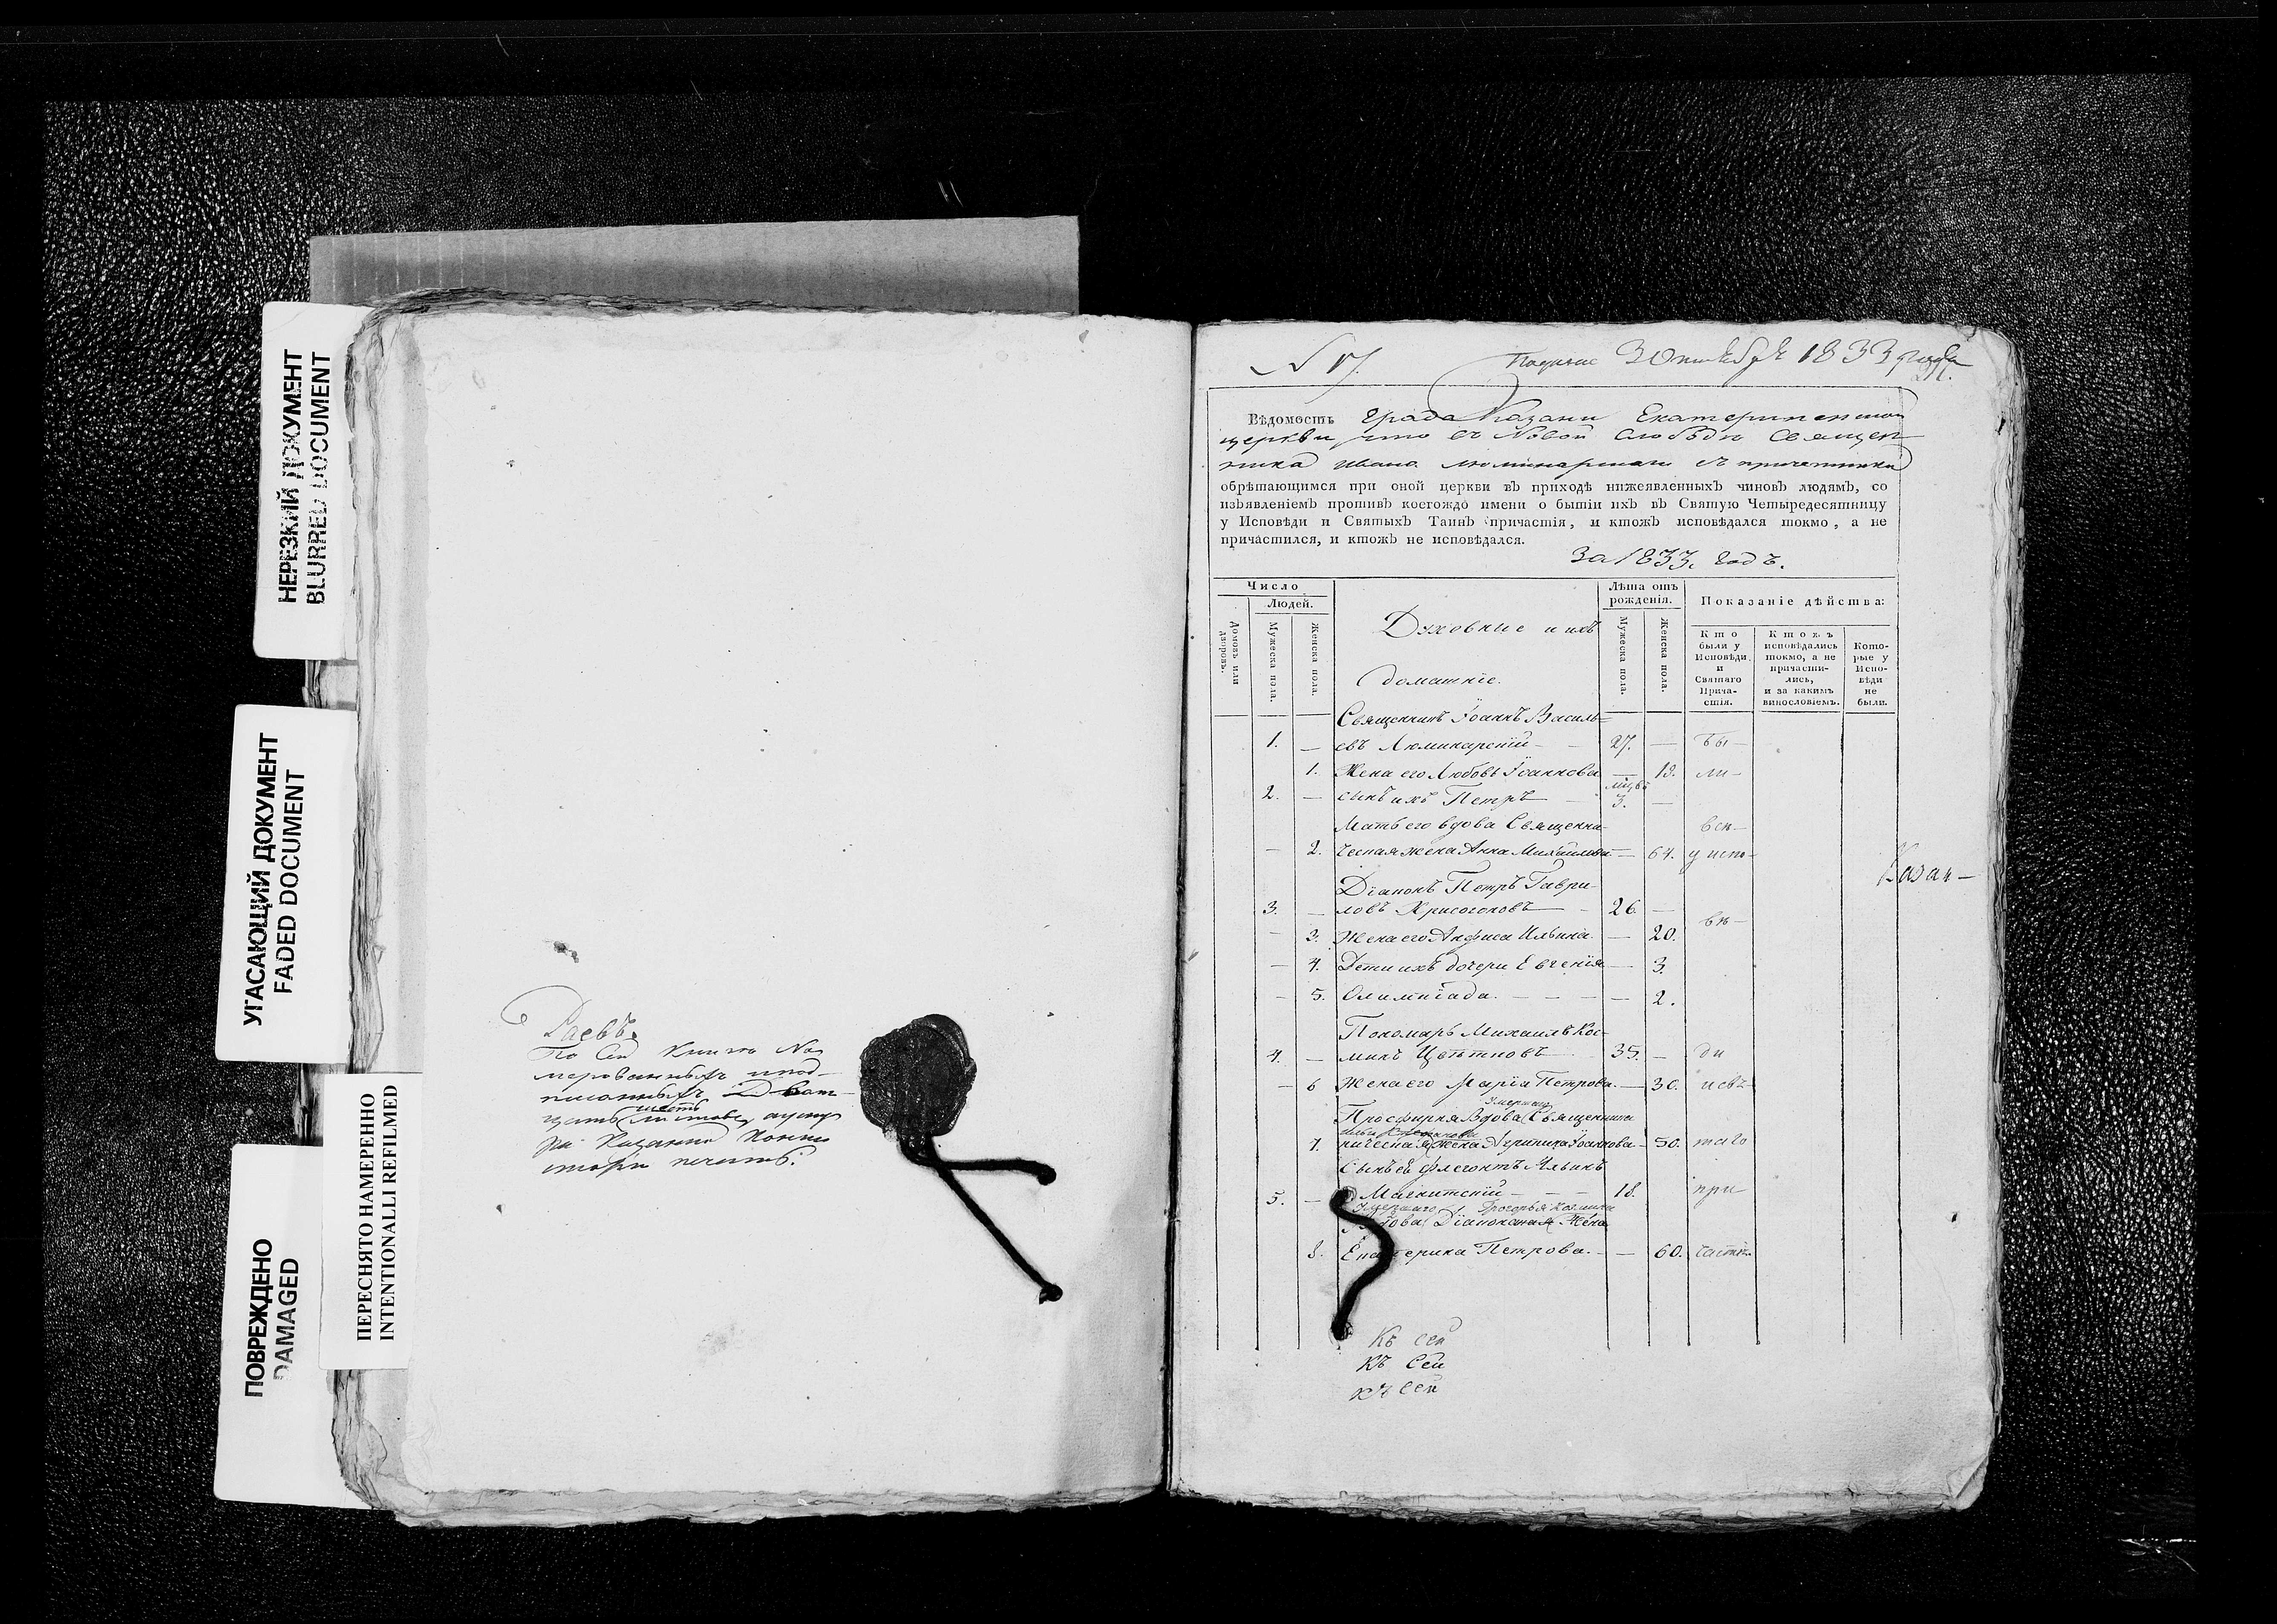 НЕРЕЗКИЙ ДОКУМЕНТ
BLURRED DOCUMENT
УГАСАЮЩИЙ ДОКУМЕНТ
FADED DOCUMENT
ПОВРЕЖДЕНО
DAMAGED
ПЕРЕСНЯТО НАМЕРЕННО
INTENTIONALLI REFILMED
Раевъ
По Сей книге
Дват-
цать шесть листовъ
печать.
N 17.
3 октября 1833 года
Вѣдомость града Казани Екатерининской
церкви что въ Новой слободѣ Священ-
ника Ивана Люминарскаго съ причетники
обрѣтающимся при оной церкви въ приходѣ нижеявленныхъ чиновъ людямъ, со
изъявленіемъ противъ коегождо имени о бытіи ихъ въ Святую Четыредесятницу
у Исповѣди и Святыхъ Таинъ причастія, и ктожъ исповѣдался токмо, а не
причастился, и ктожъ не исповѣдался.
за 1833. годъ.
Число
Людей.
Домовъ или дворовъ.
Мужеска пола.
Женска пола.
Духовные и ихъ
домашніе.
Лѣта отъ рожденія.
Мужеска пола.
Женска пола.
Показаніе дѣйства:
Кто были у Исповѣди и Святаго Причастія.
Ктожъ исповѣдались токмо, а не причасти-лись, и за какимъ винословіемъ.
Кото-рые у Испо-вѣди не были.
Священникъ Іоаннъ Василь=
1. — евъ Люминарскій — 27. — бы —
1. Жена его Любовь Іоаннова — 19. ли —
2. — сынъ ихъ Петръ — мцвъ 3. —
Мать его вдова Священни- всп —
— 2. ческая жена Анна Михайлова — 64. у испо-
Казан —
Діаконъ Петръ Гаври-
3. — ловъ Хрисогоновъ — 26 — вѣ —
— 3. Жена его Анфиса Ильина — 20.
— 4. Дети ихъ дочери Евгенія — 3.
— 5. Олимпіада. — — — 2.
Пономарь Михаилъ Кос-
4. — минъ Цвѣтковъ — 35. — ди
— 6 Жена его Марія Петрова. — 30. исвя-
Просфирня Вдова умершаго Священника
7. ническая жена Агрипина Іоаннова — 50. таго
Сынъ ея Флегонтъ Ильинъ
5. — Магнитскій — — 18. при
умершаго Григорья Космина
Вдова Діаконская Жена
8. Екатерина Петрова. — — 60. частія
Къ сей
Къ Сей
Къ сей